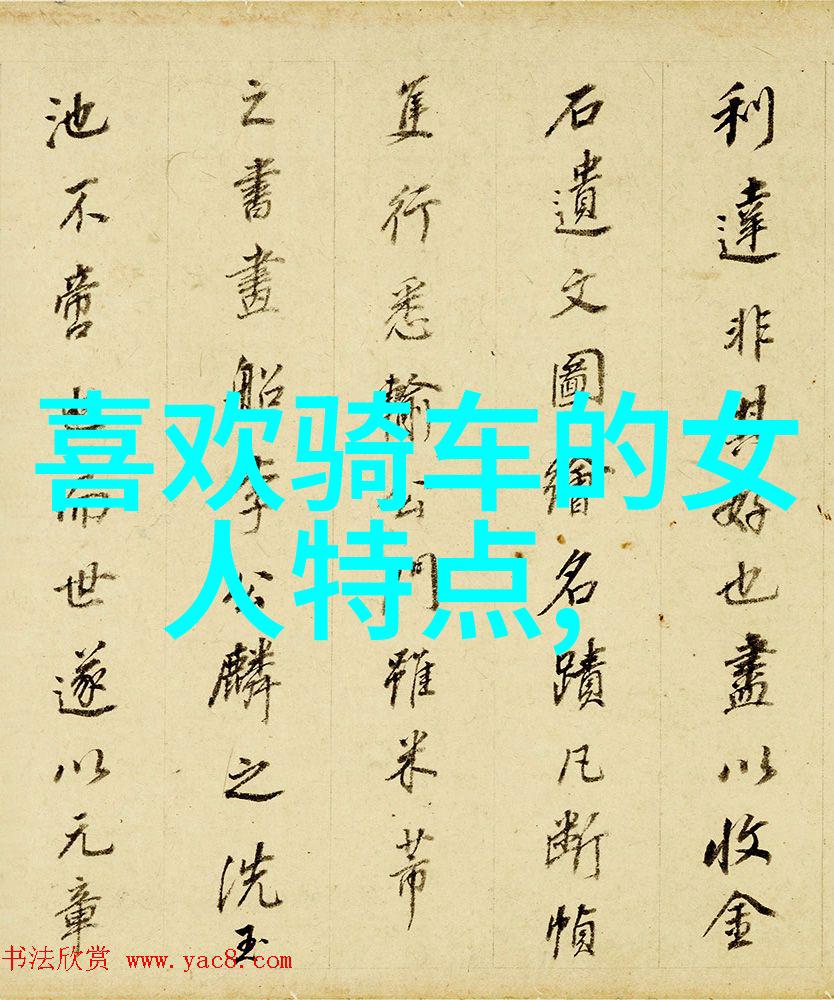 喜欢骑车的女
人特点,
利達非其好也盡以收金
石遺文圖繪名蹟凡斷幀
隻行悉輸公門雖米芾
之書畫船李公麟之洗玉
池不啻而世遂以元章
书法欣赏 www.yac8.com